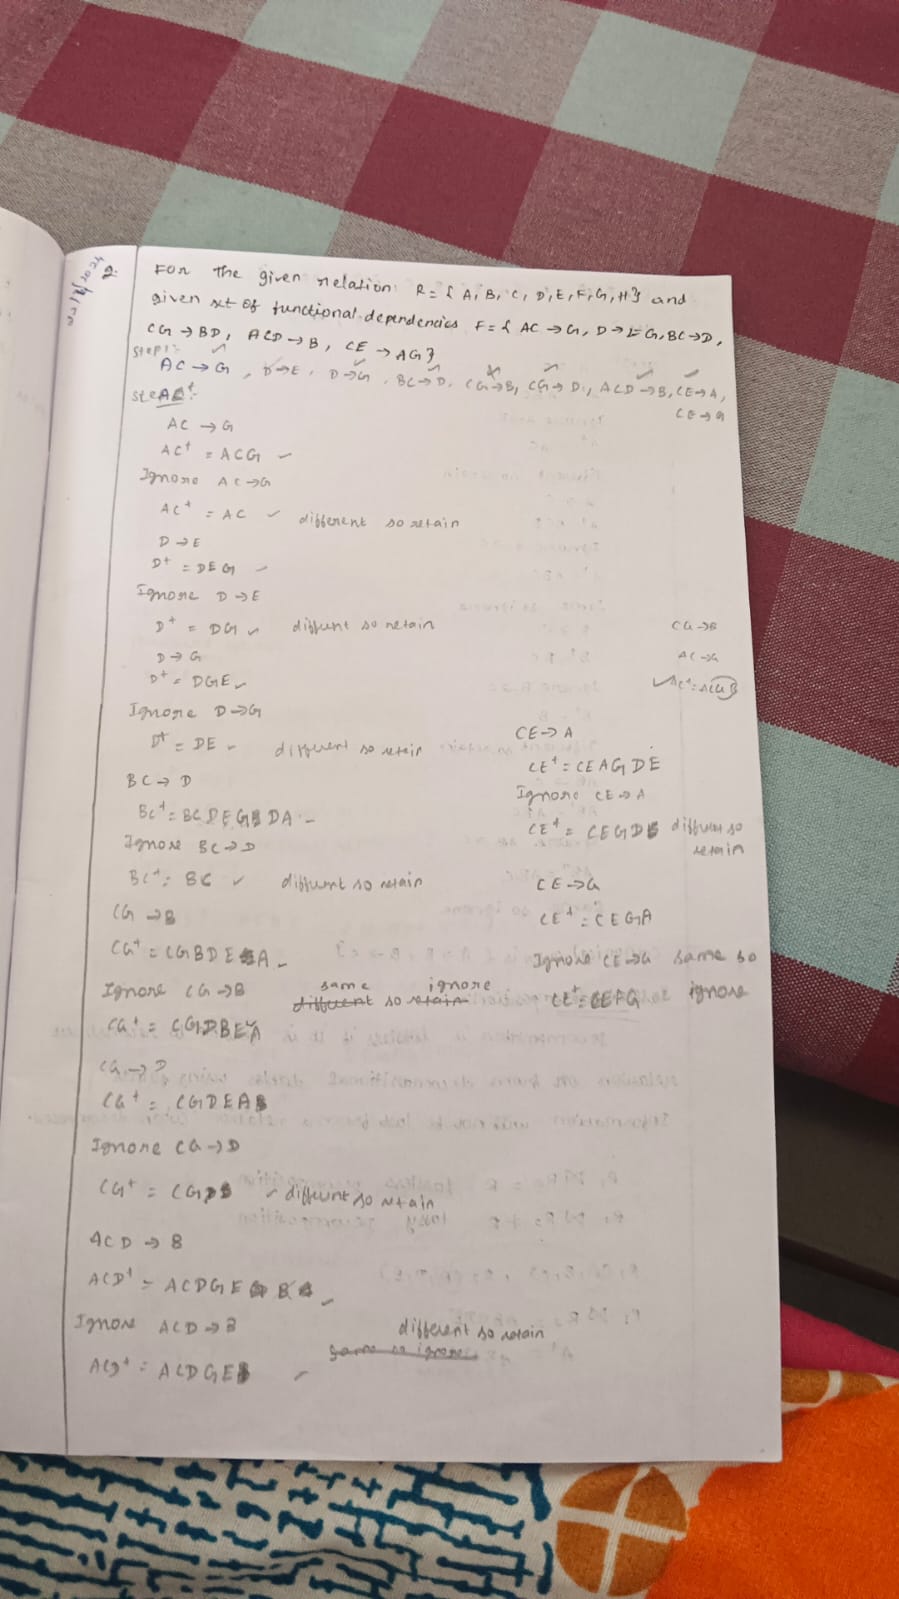 2.
For the given relation R = { A, B, C, D, E, F, G, H } and
given set of functional dependencies F = { AC → G, D → EG, BC → D,
CG → BD, ACD → B, CE → AG }
Step1:-
AC → G, D → E, D → G, BC → D, CG → B, CG → D, ACD → B, CE → A,
CE → G
AC → G
AC+ = ACG
Ignore AC → G
AC+ = AC different so retain
D → E
D+ = DEG
Ignore D → E
D+ = DG diffunt so retain
D → G
D+ = DGE
Ignore D → G
D+ = DE diffuent so retain
BC → D
BC+ = BCDEGBDA
Ignore BC → D
BC+ = BC diffuent so retain
CG → B
CG+ = CGBDE A
Ignore CG → B same ignore
different so retain
CG+ = CGDBEA
CG → D
CG+ = CGDEAB
Ignore CG → D
CG+ = different so retain
ACD → B
ACD+ = ACDGE B
Ignore ACD → B different so retain
same so ignore
ACD+ = ACDGE
CG → B
AC → G
AC+ = ACGB
CE → A
CE+ = CEAGDE
Ignore CE → A
CE+ = CEGDB diffuen so
retain
CE → G
CE+ = CEGA
Ignore CE → G same so
CE+ = CEAG ignore